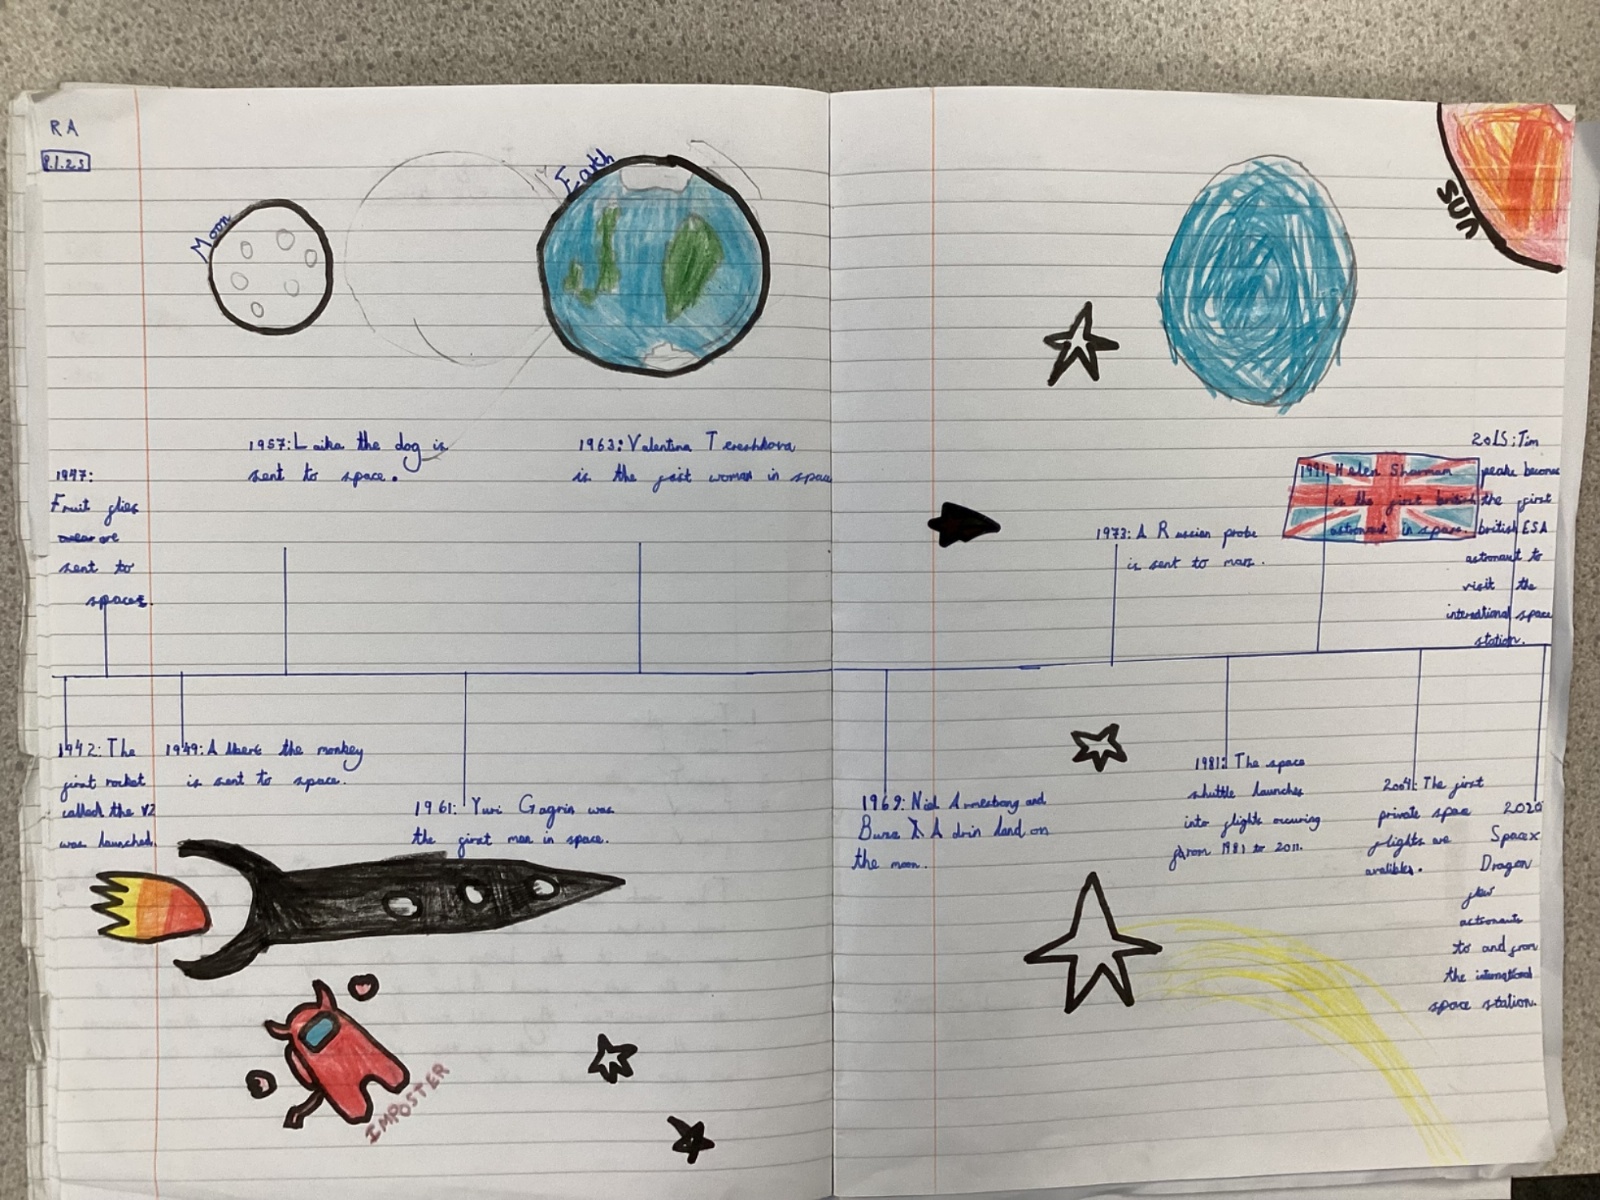 R A
8.1.25
Moon
Earth
sun
1947:
Fruit flies
are
sent to
space.
1957: Laika the dog is
sent to space.
1963: Valentina Tereshkova
is the first woman in space
1973: A Russian probe
is sent to mars.
1991: Helen Sharman
is the first british
astronaut in space.
2015: Tim
peake become
the first
british ESA
astronaut to
visit the
internationl space
station.
1942: The
first rocket
called the V2
was launched.
1949: Albert the monkey
is sent to space.
1961: Yuri Gagrin was
the first man in space.
1969: Niel Armstrong and
Buzz Adrin land on
the moon.
1981: The space
shuttle launches
into flights occuring
from 1981 to 2011.
2004: The first
private space
flights are
avalibles.
2020
Spacex
Dragon
flew
astronauts
to and from
the international
space station.
IMPOSTER